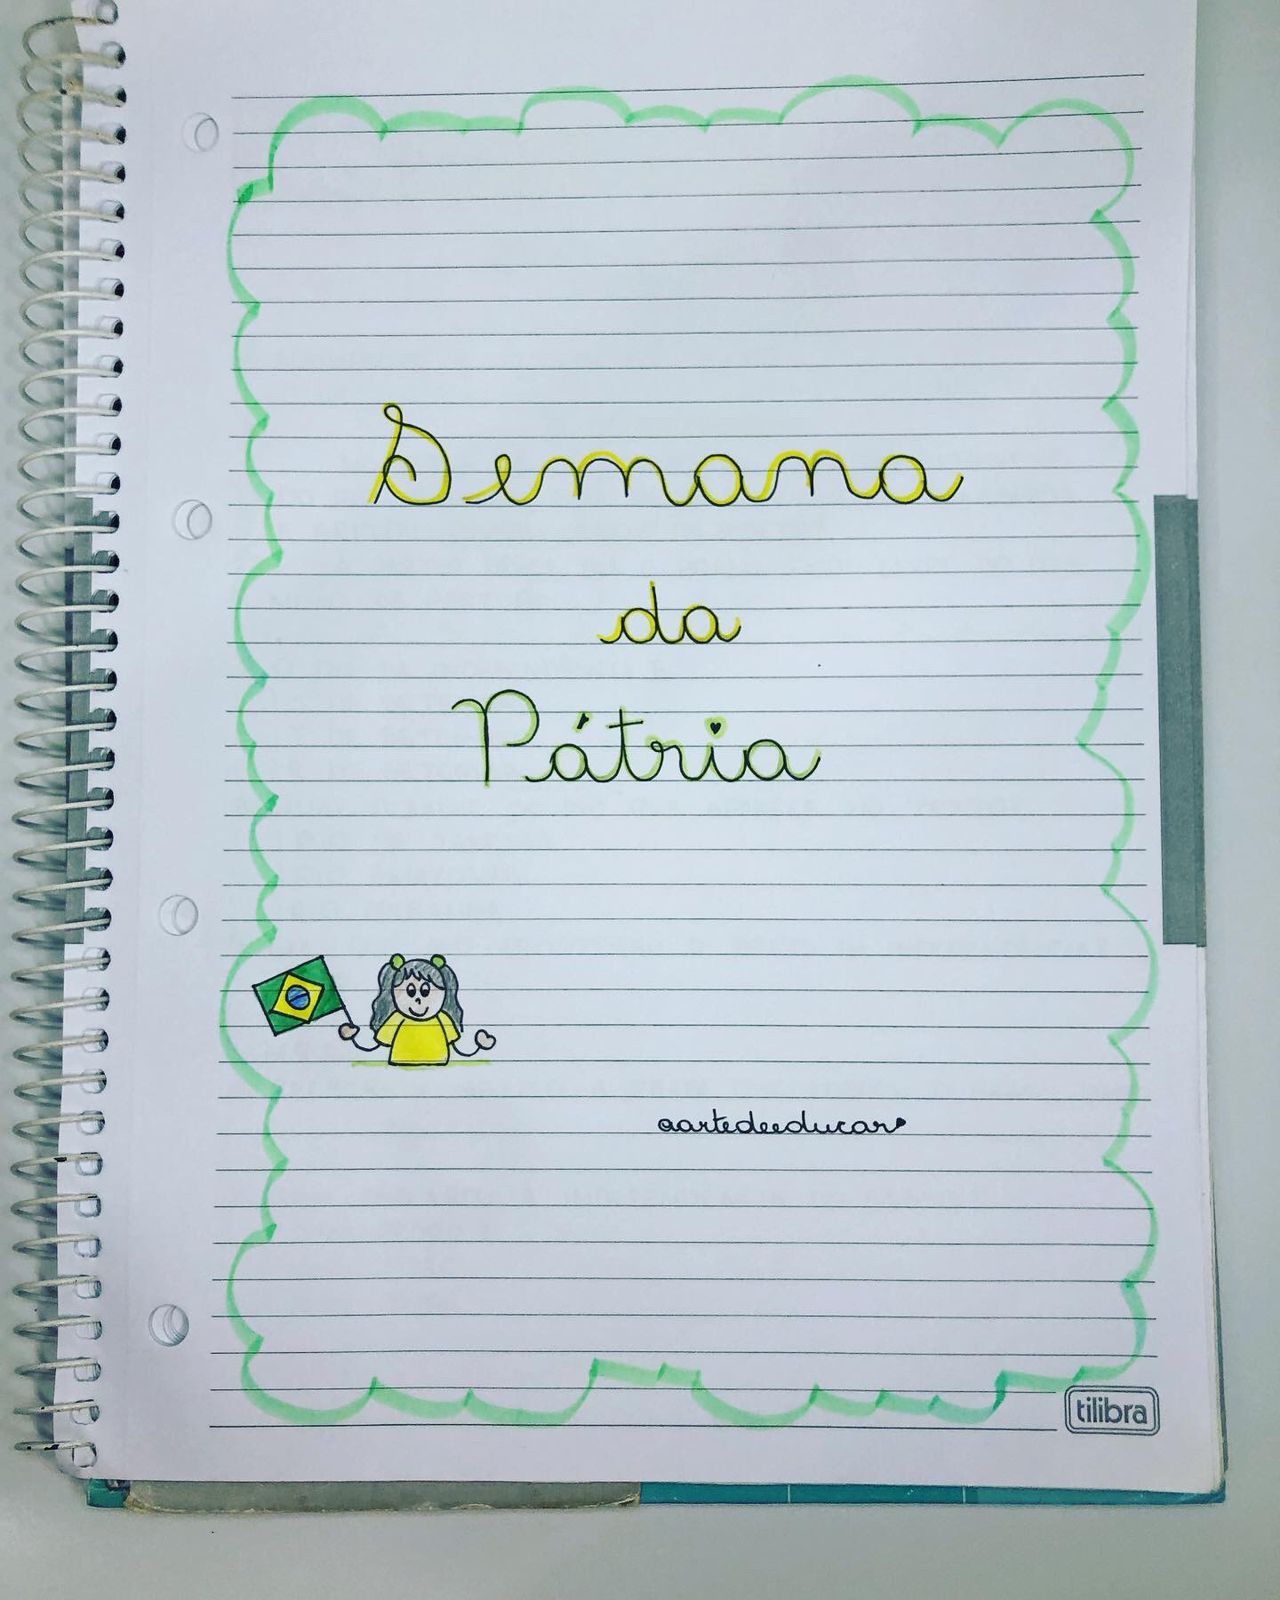 Semana
da
Pátria
aartedeeducar
tilibra